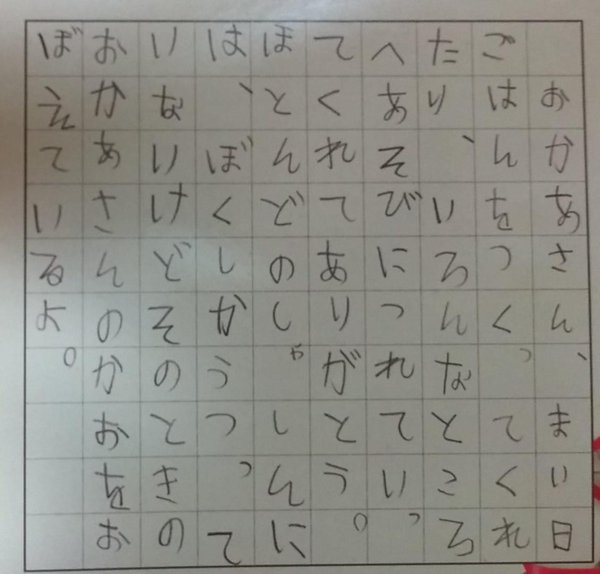 おかあさん、まい日
ごはんをつくってくれ
たり、いろんなところ
へあそびにつれていっ
てくれてありがとう。
ほとんどのしゃしんに
は、ぼくしかうつって
いないけどそのときの
おかあさんのかおをお
ぼえているよ。